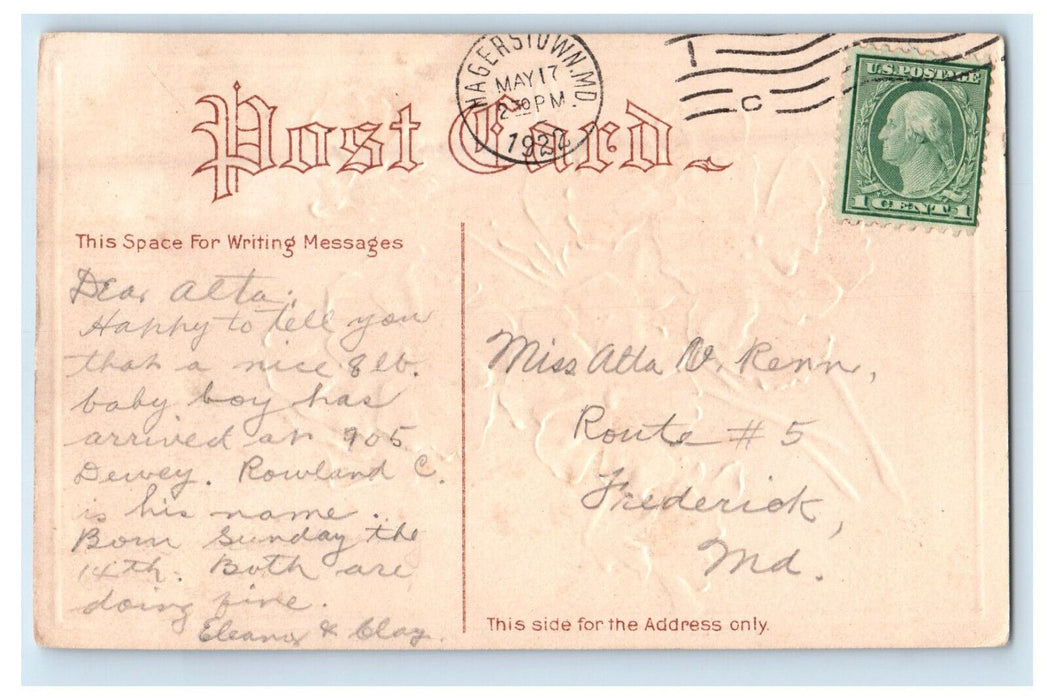 Post Card
HAGERSTOWN, MD.
MAY 17
2 30 PM.
1922
C
U.S. POSTAGE
1 CENT 1
This Space For Writing Messages
Dear Alta:
Happy to tell you
that a nice 8 lb.
baby boy has
arrived at 905
Dewey. Rowland C.
is his name.
Born Sunday the
14th. Both are
doing fine.
Eleanor & Clay.
Miss Alta V. Renn,
Route #5
Frederick,
Md.
This side for the Address only.